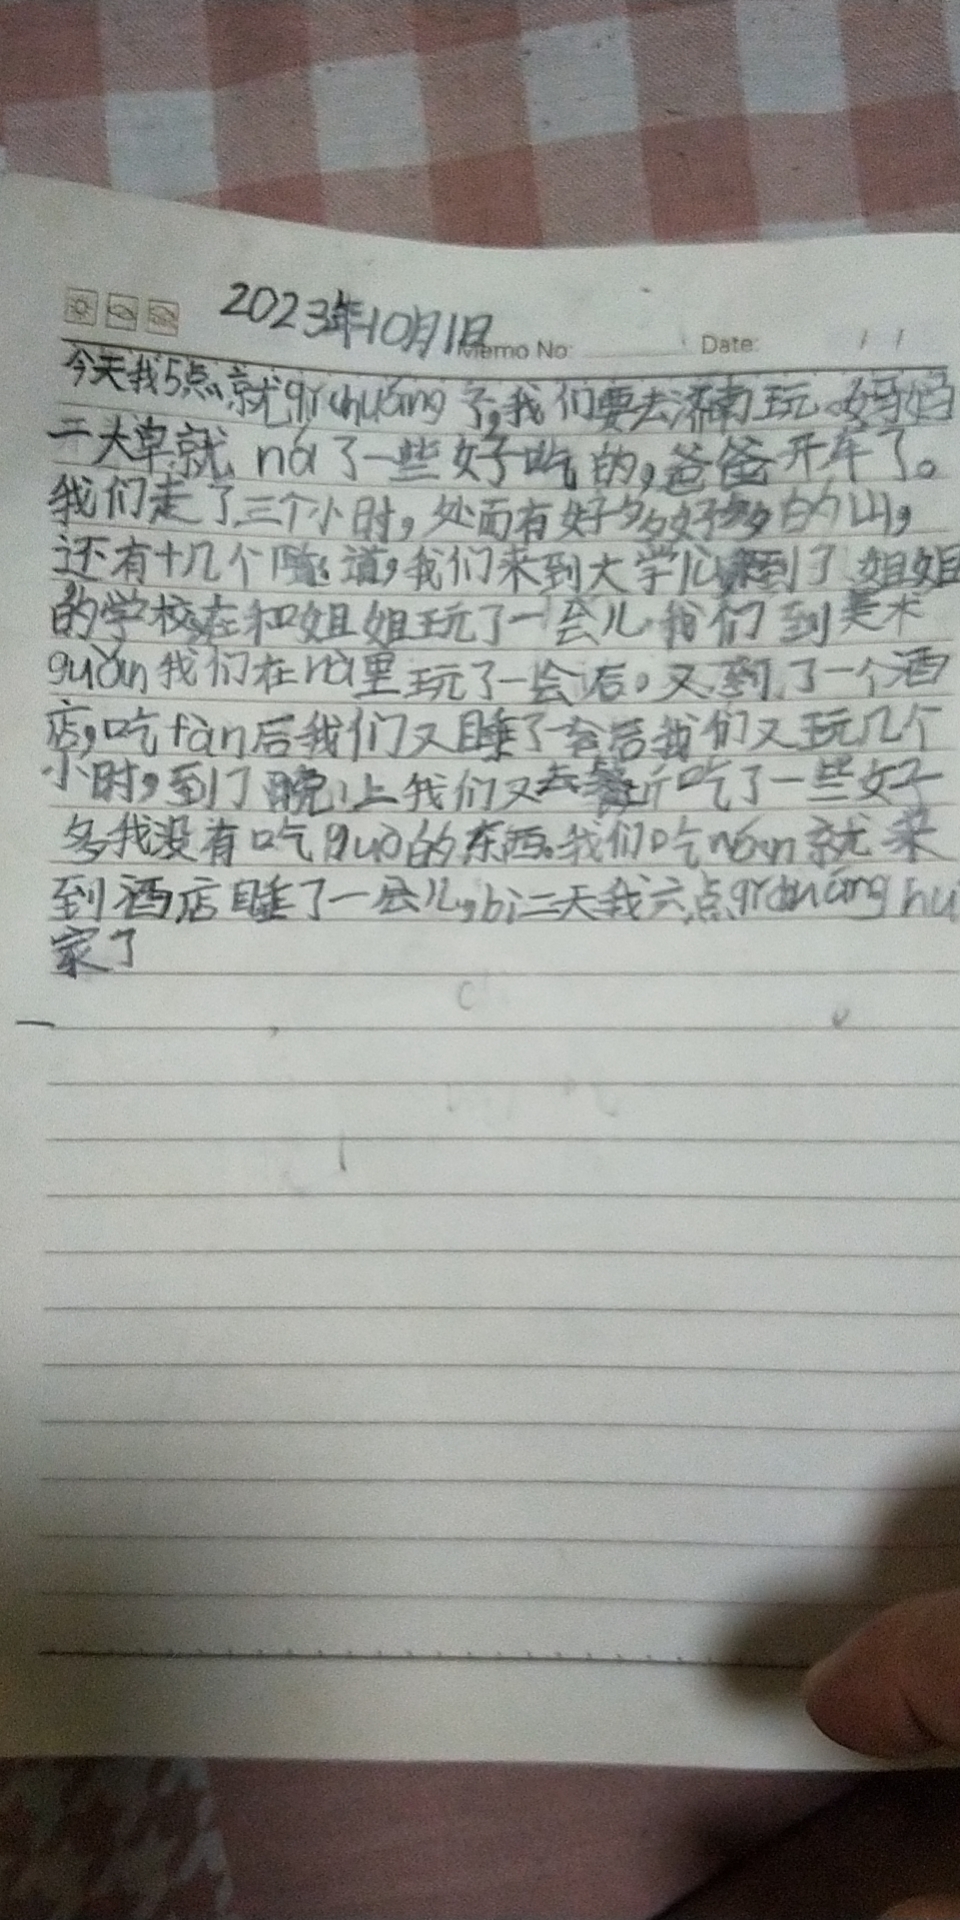 2023年10月1日
Memo No: Date: / /
今天我5点就qǐchuáng了,我们要去济南玩 妈妈
一大早就 ná了一些好吃的,爸爸开车了。
我们走了三个小时,处面有好多好多的山,
还有十几个隧道,我们来到大学儿 到了 姐姐
的学校在和姐姐玩了一会儿 我们到美术
guǎn我们在nà里玩了一会后。又到了一个酒
店,吃fàn后我们又睡了 后我们又玩几个
小时,到了晚上我们又去餐厅吃了一些好
多我没有吃guò的东西。我们吃 就来
到酒店睡了一会儿,bì二天我六点qǐchuáng huí
家了